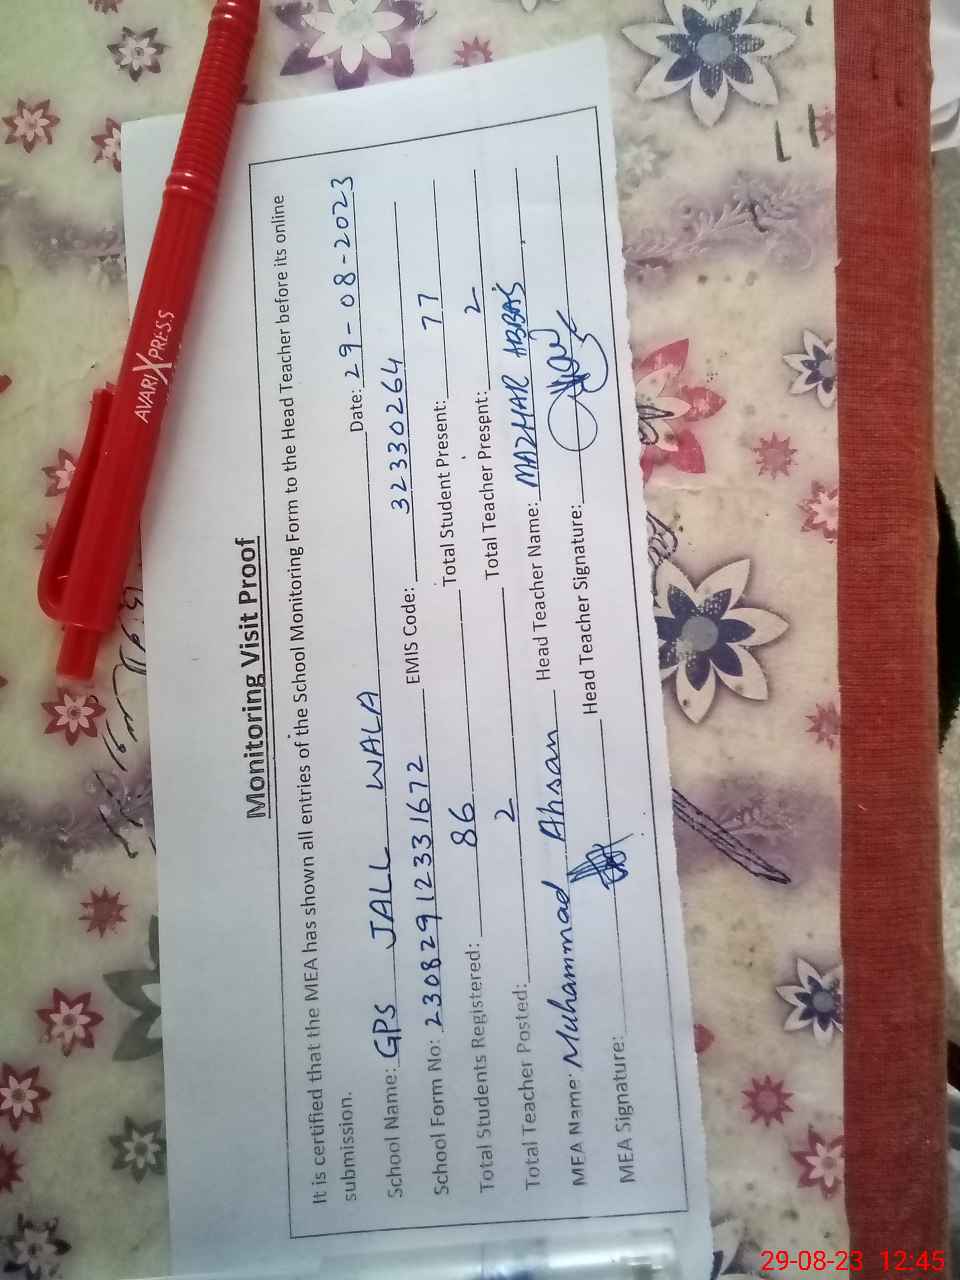 AVARI XPRESS
Monitoring Visit Proof
It is certified that the MEA has shown all entries of the School Monitoring Form to the Head Teacher before its online
submission.
School Name: GPS JALL WALA Date: 29-08-2023
School Form No: 23082912331672 EMIS Code: 32330264
Total Students Registered: 86 Total Student Present: 77
Total Teacher Posted: 2 Total Teacher Present: 2
MEA Name: Muhammad Ahsan Head Teacher Name: MAZHAR ABBAS
MEA Signature: Head Teacher Signature:
29-08-23 12:45